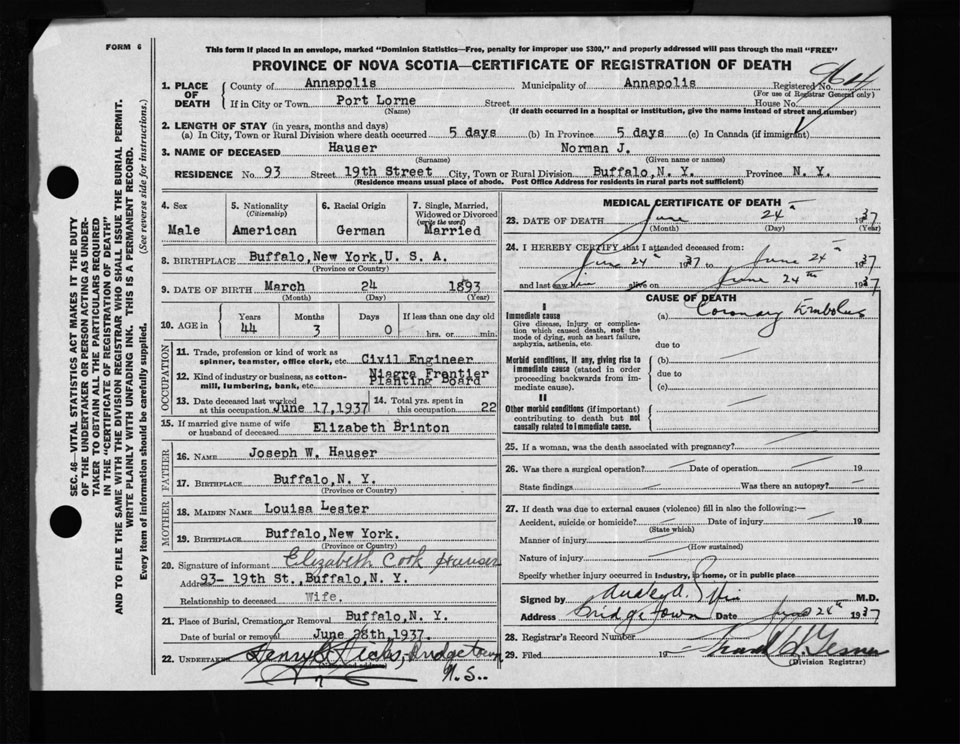 FORM 6
This form if placed in an envelope, marked "Dominion Statistics—Free, penalty for improper use $300," and properly addressed will pass through the mail "FREE"
PROVINCE OF NOVA SCOTIA—CERTIFICATE OF REGISTRATION OF DEATH
SEC. 46—VITAL STATISTICS ACT MAKES IT THE DUTY
OF THE UNDERTAKER OR PERSON ACTING AS UNDER-
TAKER TO OBTAIN ALL THE PARTICULARS REQUIRED
IN THE "CERTIFICATE OF REGISTRATION OF DEATH"
AND TO FILE THE SAME WITH THE DIVISION REGISTRAR WHO SHALL ISSUE THE BURIAL PERMIT.
WRITE PLAINLY WITH UNFADING INK. THIS IS A PERMANENT RECORD.
Every item of information should be carefully supplied. (See reverse side for instructions.)
1. PLACE OF DEATH
County of Annapolis Municipality of Annapolis Registered No.
(For use of Registrar General only)
If in City or Town Port Lorne Street House No.
(Name) (If death occurred in a hospital or institution, give the name instead of street and number)
2. LENGTH OF STAY (in years, months and days)
(a) In City, Town or Rural Division where death occurred 5 days (b) In Province 5 days (c) In Canada (if immigrant)
3. NAME OF DECEASED Hauser Norman J.
(Surname) (Given name or names)
RESIDENCE No. 93 Street 19th Street City, Town or Rural Division Buffalo, N. Y. Province N. Y.
(Residence means usual place of abode. Post Office Address for residents in rural parts not sufficient)
4. Sex 5. Nationality (Citizenship) 6. Racial Origin 7. Single, Married, Widowed or Divorced (write the word)
Male American German Married
8. BIRTHPLACE Buffalo, New York, U. S. A.
(Province or Country)
9. DATE OF BIRTH March 24 1893
(Month) (Day) (Year)
10. AGE in Years Months Days If less than one day old
44 3 0 hrs. or min.
OCCUPATION
11. Trade, profession or kind of work as
spinner, teamster, office clerk, etc. Civil Engineer
12. Kind of industry or business, as cotton-
mill, lumbering, bank, etc. Niagra Frontier Planting Board
13. Date deceased last worked
at this occupation June 17, 1937
14. Total yrs. spent in
this occupation 22
15. If married give name of wife
or husband of deceased Elizabeth Brinton
FATHER
16. NAME Joseph W. Hauser
17. BIRTHPLACE Buffalo, N. Y.
(Province or Country)
MOTHER
18. MAIDEN NAME Louisa Lester
19. BIRTHPLACE Buffalo, New York.
(Province or Country)
20. Signature of informant Elizabeth Cook Hauser
Address 93- 19th St., Buffalo, N. Y.
Relationship to deceased Wife.
21. Place of Burial, Cremation or Removal Buffalo, N. Y.
Date of burial or removal June 28th, 1937.
22. UNDERTAKER Henry B. Hicks, Bridgetown
N. S.
MEDICAL CERTIFICATE OF DEATH
23. DATE OF DEATH June 24th 1937
(Month) (Day) (Year)
24. I HEREBY CERTIFY that I attended deceased from:
June 24th 1937 to June 24th 1937
and last saw him alive on June 24th 1937
CAUSE OF DEATH
I
Immediate cause (a) Coronary Embolus
Give disease, injury or complica-
tion which caused death, not the
mode of dying, such as heart failure,
asphyxia, asthenia, etc. due to
Morbid conditions, if any, giving rise to (b)
immediate cause (stated in order due to
proceeding backwards from im-
mediate cause). (c)
II
Other morbid conditions (if important)
contributing to death but not
causally related to immediate cause.
25. If a woman, was the death associated with pregnancy?
26. Was there a surgical operation? Date of operation 19
State findings Was there an autopsy?
27. If death was due to external causes (violence) fill in also the following:—
Accident, suicide or homicide? Date of injury 19
(State which)
Manner of injury
(How sustained)
Nature of injury
Specify whether injury occurred in industry, in home, or in public place
Signed by M.D.
Address Bridgetown Date June 24th 1937
28. Registrar's Record Number
29. Filed 19
(Division Registrar)